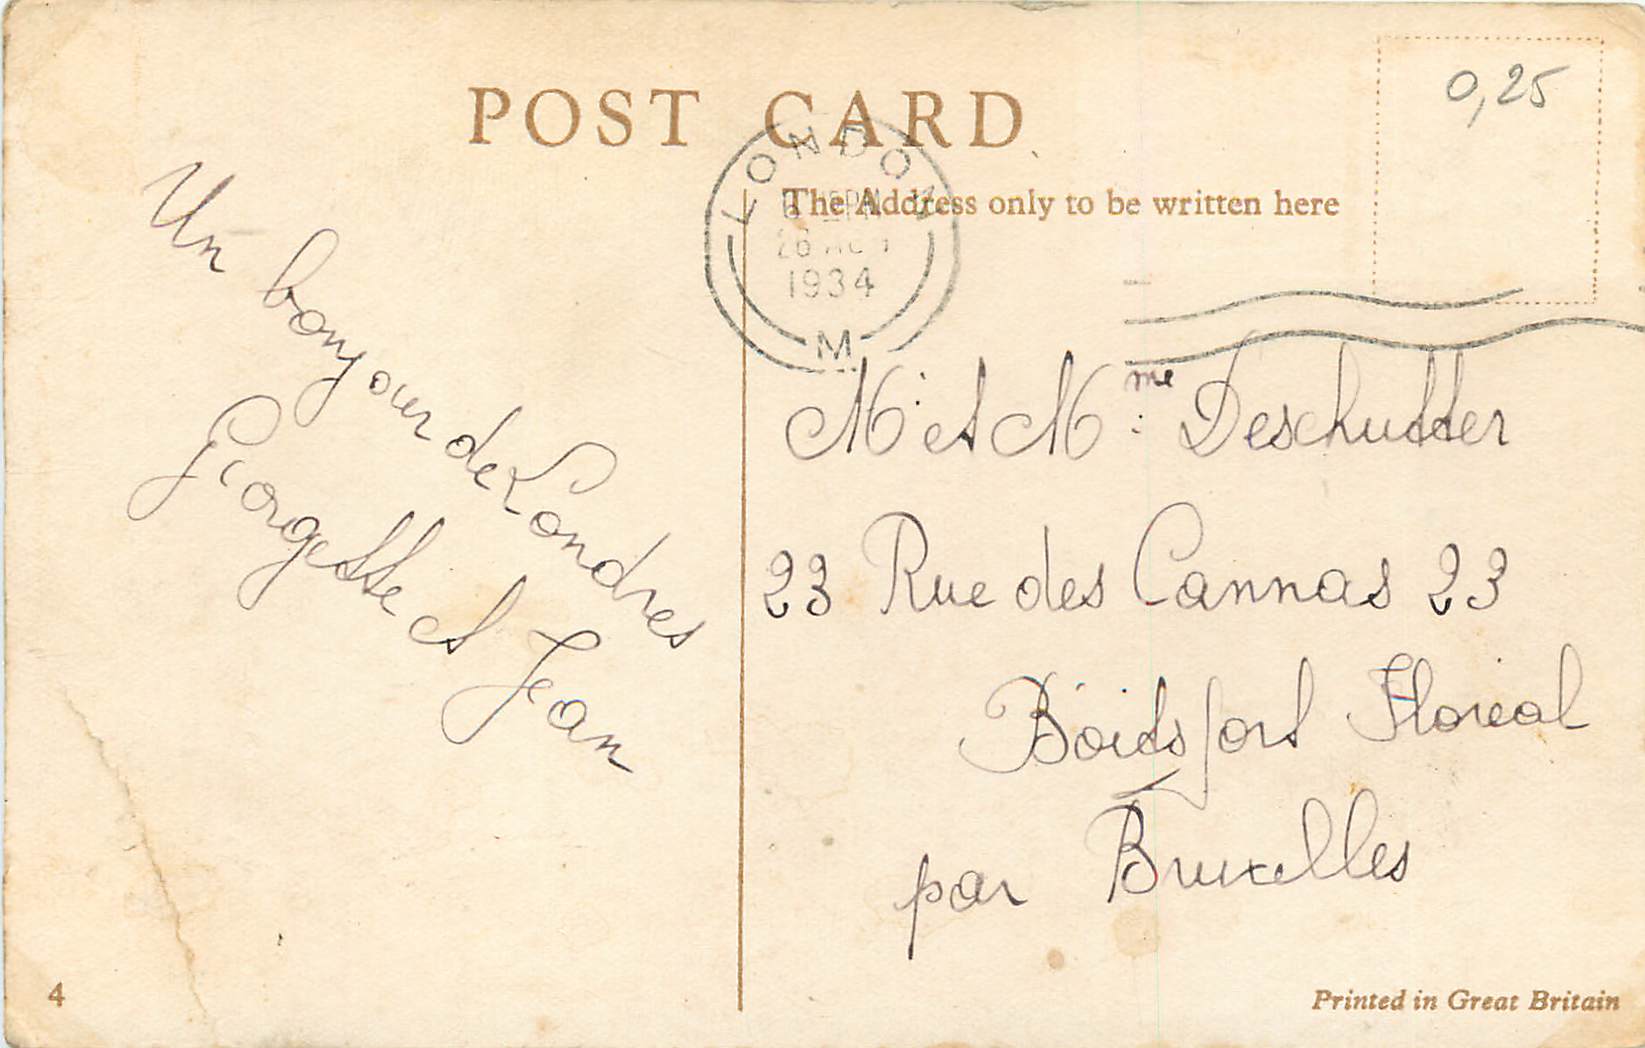 POST CARD
0,25
The Address only to be written here
LONDON
PM
1934
M
Un bonjour de Londres
Georgette et Jean
M. et M.me Deschutter
23 Rue des Cannas 23
Boitsfort Floréal
par Bruxelles
4
Printed in Great Britain